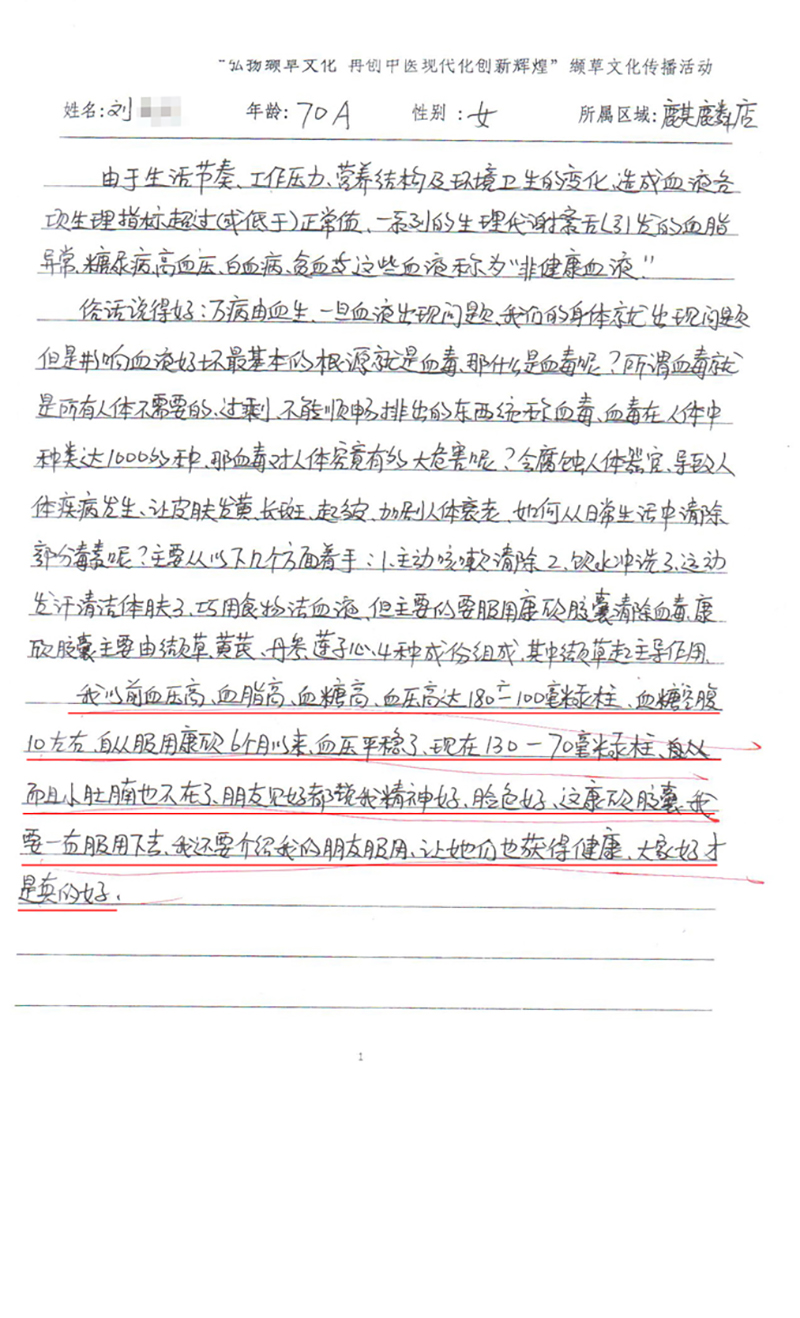 “弘扬缬草文化 再创中医现代化创新辉煌”缬草文化传播活动
姓名:刘 年龄:70A 性别:女 所属区域:麒麟店
由于生活节奏、工作压力、营养结构及环境卫生的变化,造成血液各
项生理指标超过(或低于)正常值、一系列的生理代谢紊乱引发的血脂
异常、糖尿病、高血压、白血病、贫血等这些血液称为“非健康血液”
俗话说得好:万病由血生、一旦血液出现问题、我们的身体就出现问题
但是影响血液好坏最基本的根源就是血毒、那什么是血毒呢?所谓血毒就
是所有人体不需要的、过剩、不能顺畅排出的东西统称血毒、血毒在人体中
种类达1000多种、那血毒对人体究竟有多大危害呢?会腐蚀人体器官、导致人
体疾病发生、让皮肤发黄、长斑、起皱、加剧人体衰老、如何从日常生活中清除
部分毒素呢?主要从以下几个方面着手:1、主动咳嗽清除2、饮水冲洗3、运动
发汗清洁体肤3、巧用食物洁血液、但主要的要服用康欣胶囊清除血毒、康
欣胶囊主要由缬草、黄芪、丹参、莲子心、4种成份组成、其中缬草起主导作用、
我以前血压高、血脂高、血糖高、血压高达180—100毫米汞柱、血糖空腹
10左右、自从服用康欣6个月以来、血压平稳了、现在130—70毫米汞柱、
而且小肚腩也不在了、朋友见好都说我精神好、脸色好、这康欣胶囊、我
要一直服用下去、我还要介绍我的朋友服用、让她们也获得健康、大家好才
是真的好、
1